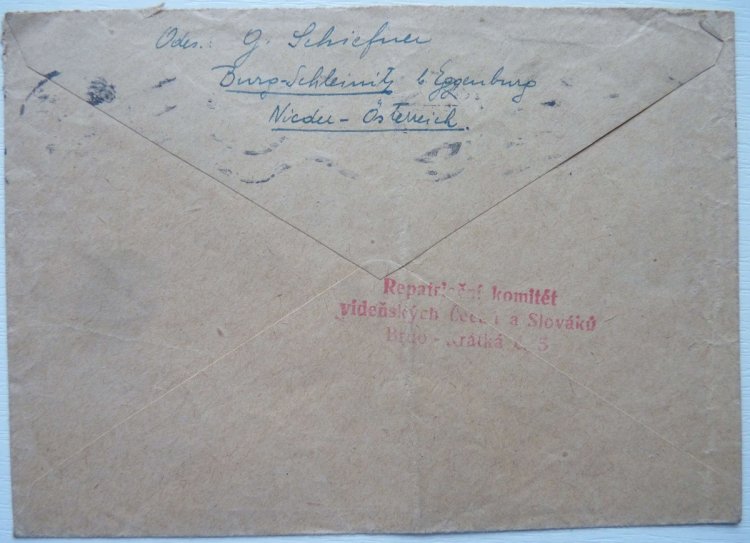 Odes.: G. Schiefner
Burg-Schleinitz b. Eggenburg
Nieder-Österreich.
Repatriační komitét
vídeňských Čechů a Slováků
Brno - Krátká č. 3